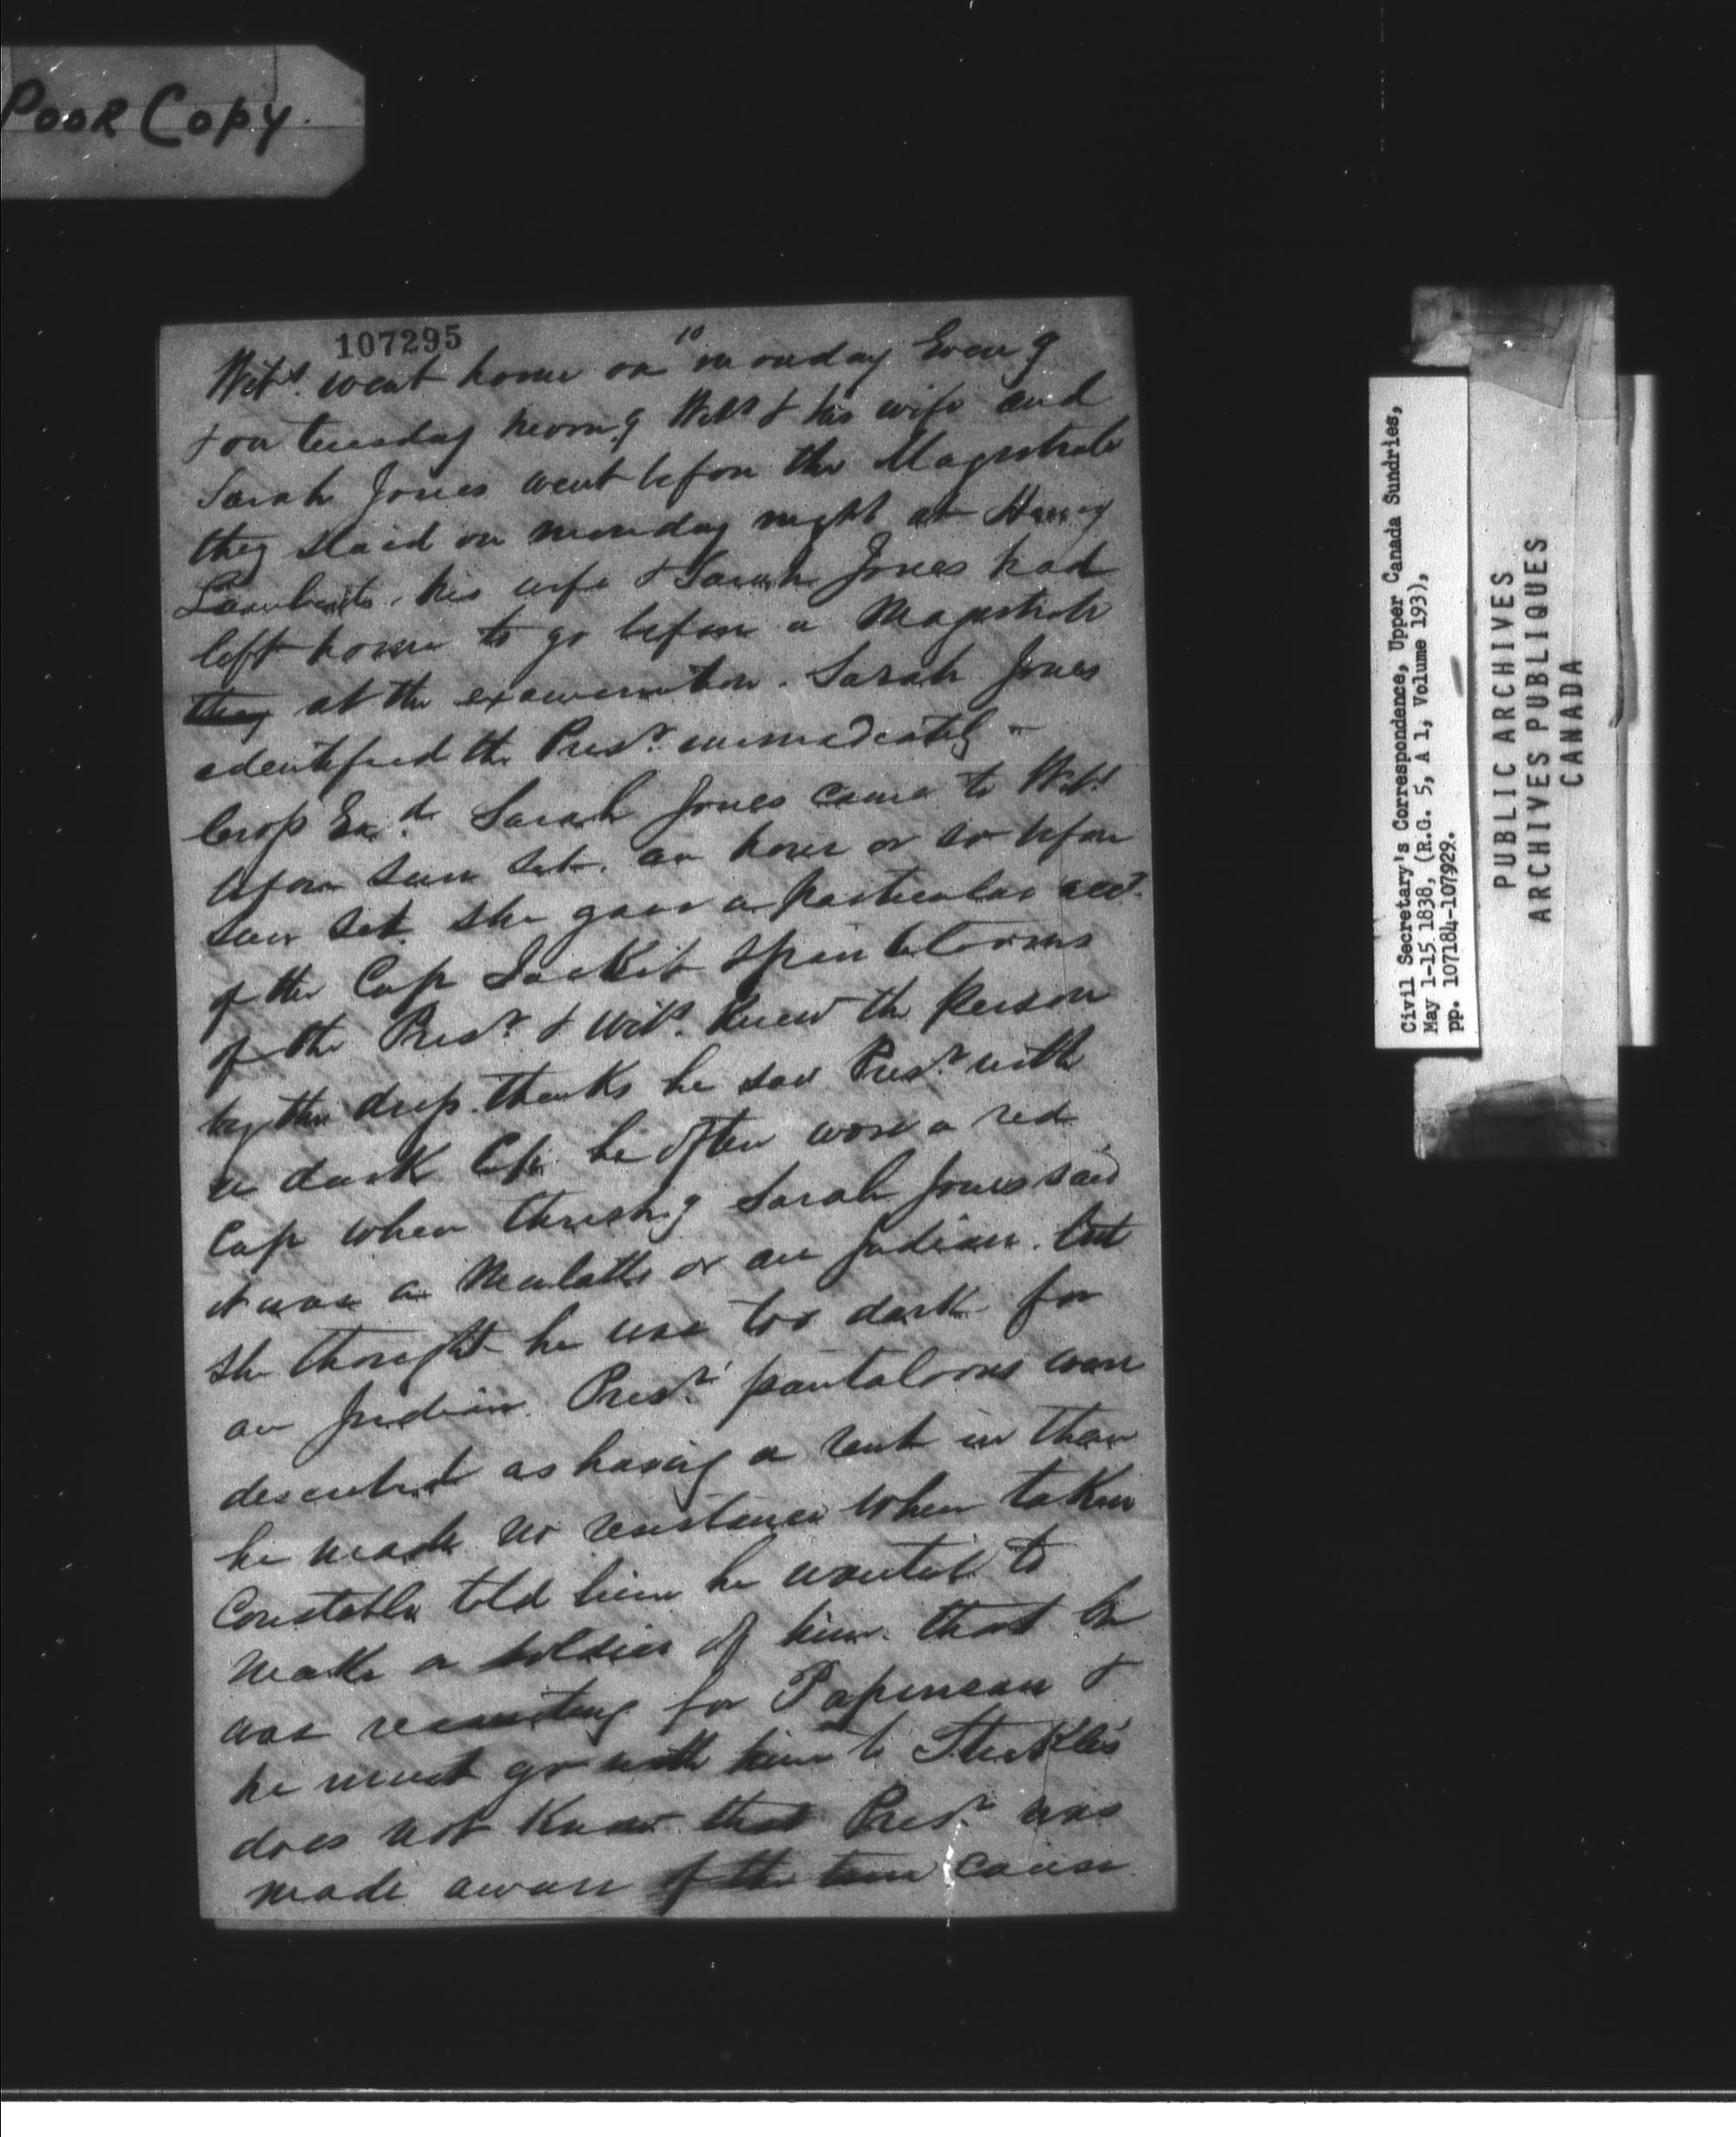 Poor Copy.
107295
10
Wits. went home on monday Eveng
& on tuesday morng Wits & his wife and
Sarah Jones went before the Magistrate
they staid on monday night at Henry
Lamberts. his wife & Sarah Jones had
left home to go before a Magistrate
they at the examination. Sarah Jones
edentifued the Prisr. immediately -
Cross Exd. Sarah Jones came to Wits.
before sun set. an hour or so before
sun set. she gave a particular acct.
of the Cap Jacket & pantaloons
of the Prisr. & Wits. knew the person
by the dress. thinks he saw Prisr. with
a dark Cap. he often wore a red
Cap when threshg Sarah Jones said
it was a Mulatto or an Indian. but
she thought he was too dark for
an Indian. Prisr.' pantaloons were
described as having a rent in them
he made no resistance when taken
Constable told him he wanted to
make a soldier of him. that he
was recruiting for Papineau &
he must go with him to
does not know that Prisr. was
made aware of the true cause
Civil Secretary's Correspondence, Upper Canada Sundries,
May 1-15 1838, (R.G. 5, A 1, Volume 193),
pp. 107184-107929.
PUBLIC ARCHIVES
ARCHIVES PUBLIQUES
CANADA